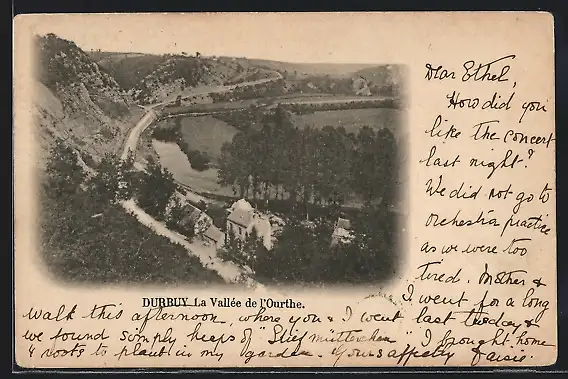 Dear Ethel,
How did you
like the concert
last night?
We did not go to
orchestra practice
as we were too
tired. Mother &
I went for a long
DURBUY La Vallée de l'Ourthe.
walk this afternoon, where you & I went last Tuesday &
we found simply heaps of "Stiefmütterchen" I brought home
4 roots to plant in my garden. Yours affectly